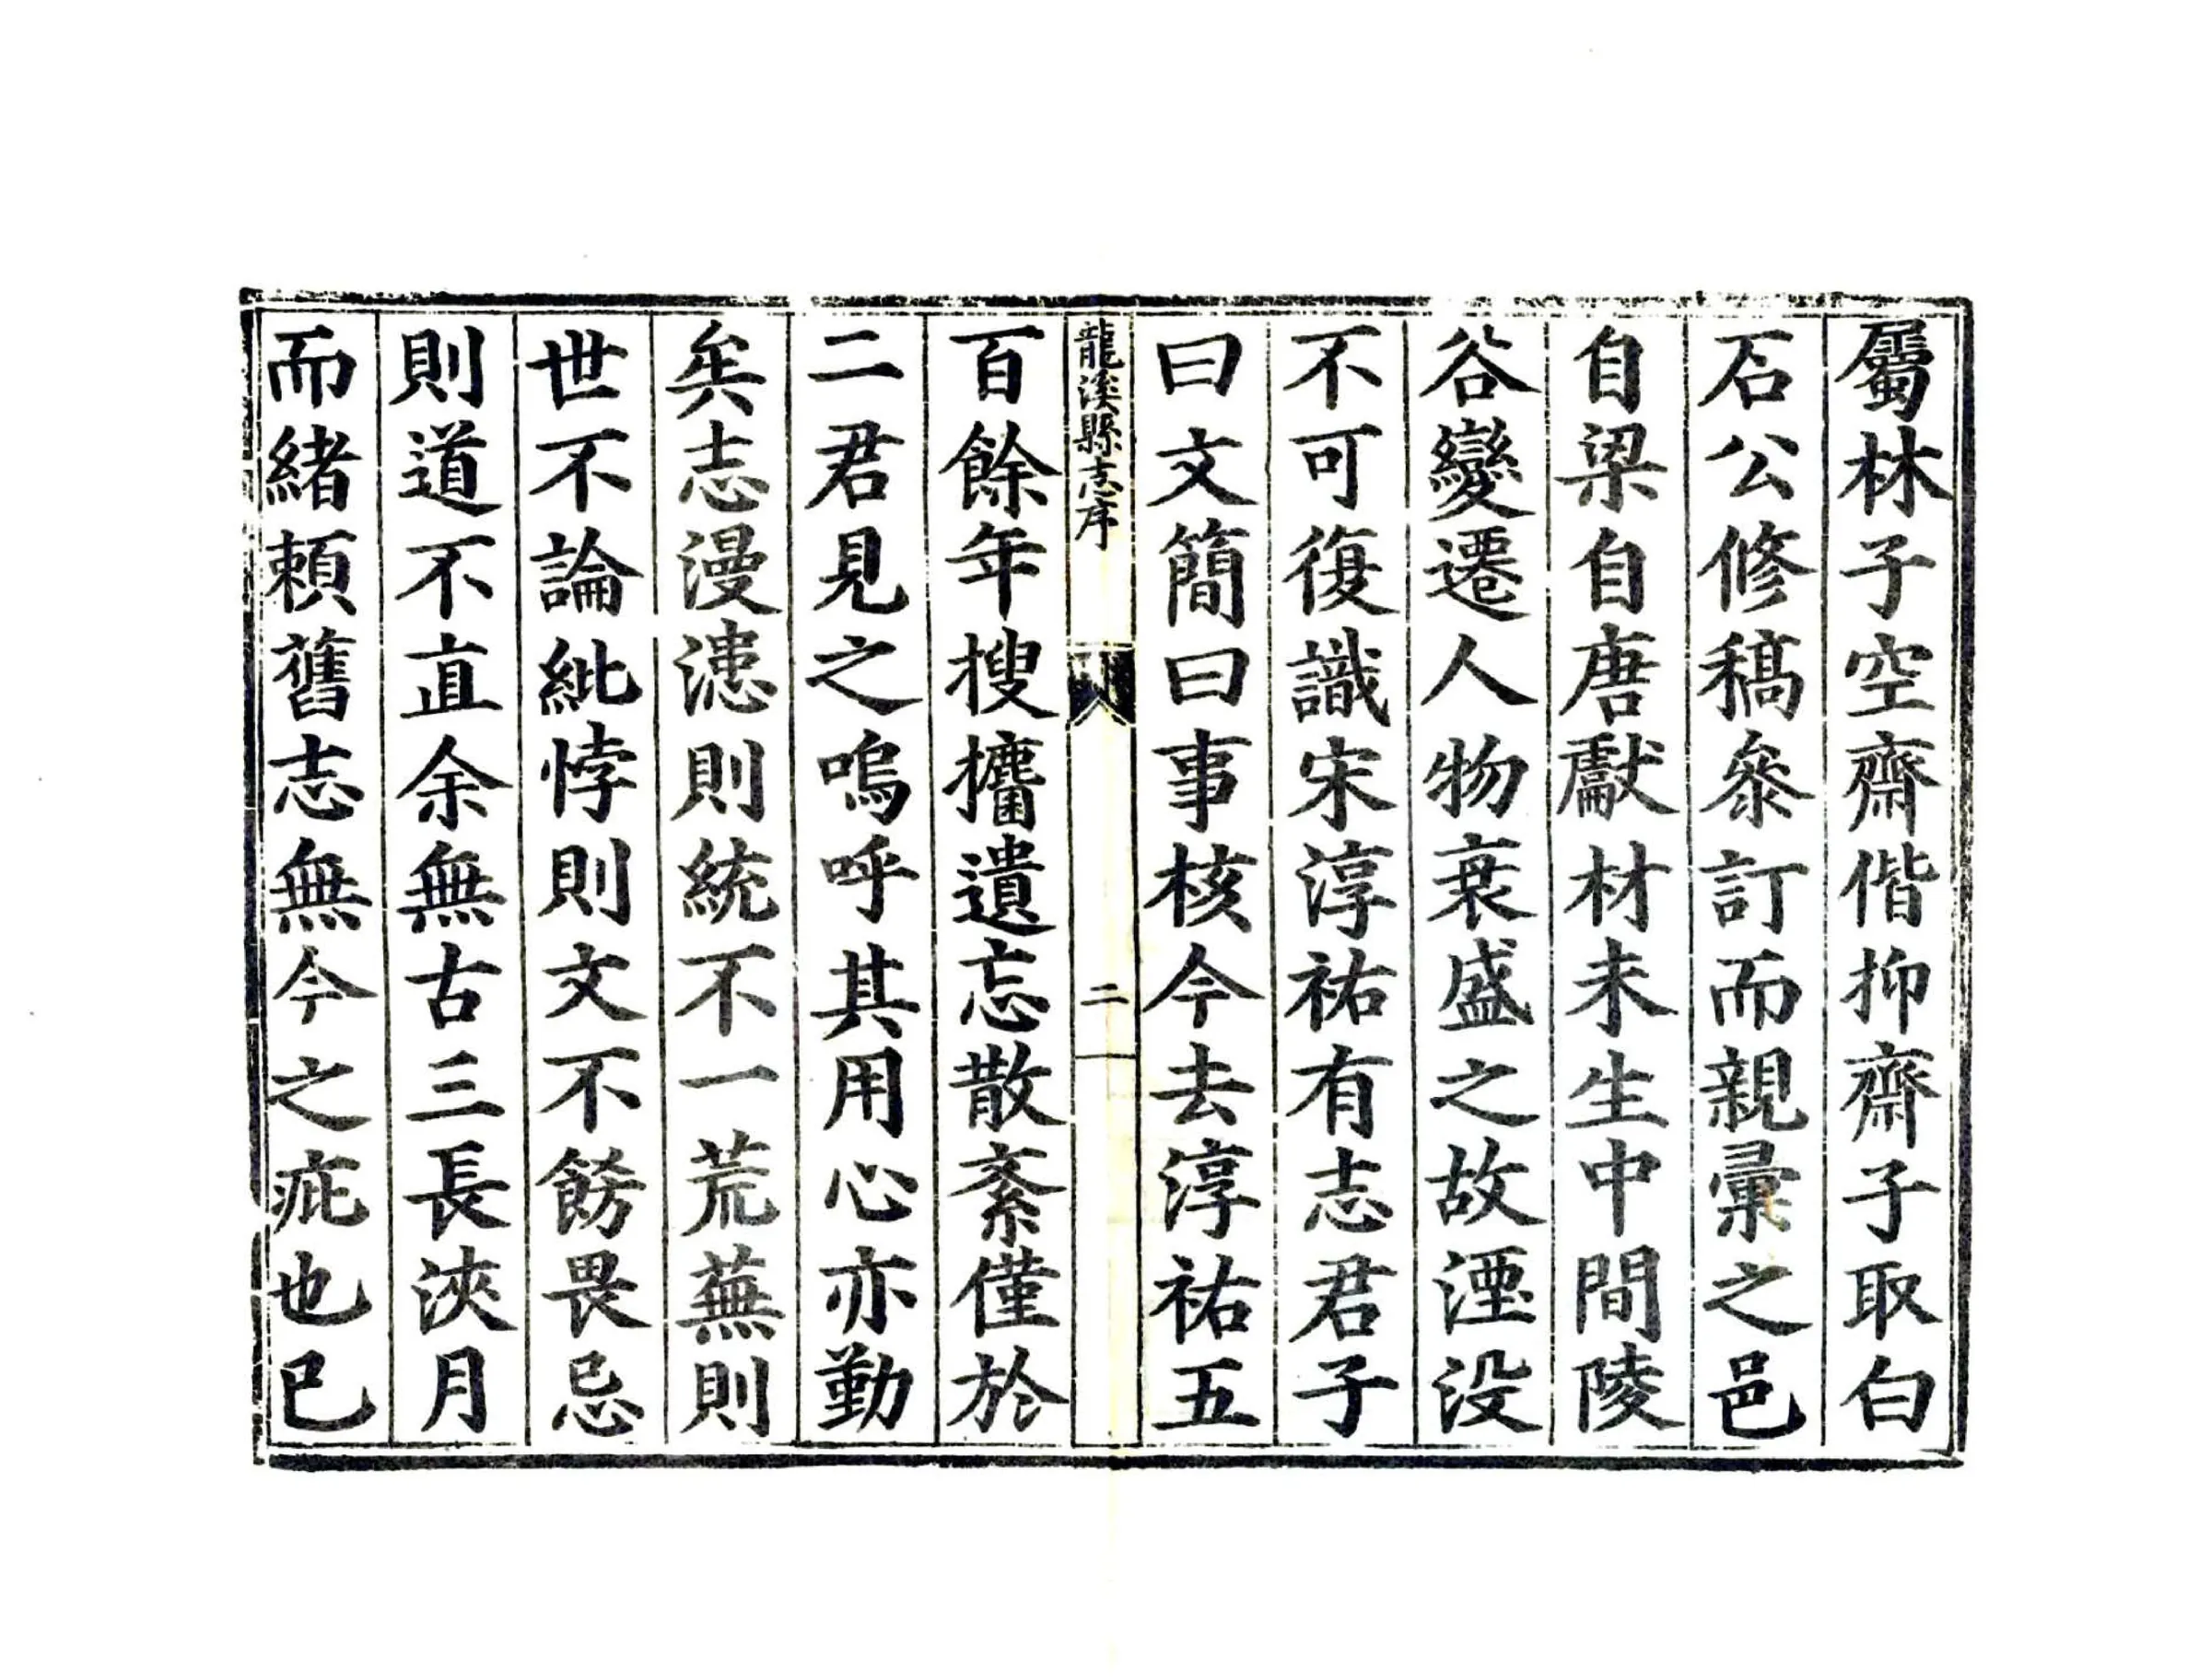 屬林子空齋偕抑齋子取白
石公修稿叅訂而親彙之邑
自梁自唐獻材未生中間陵
谷變遷人物衰盛之故湮没
不可復識宋淳祐有志君子
曰文簡曰事核今去淳祐五
龍溪縣志序
二
百餘年搜攟遺忘散紊僅於
二君見之嗚呼其用心亦勤
矣志漫漶則統不一荒蕪則
世不論紕悖則文不餝畏忌
則道不直余無古三長浹月
而緒頼舊志無今之疵也已